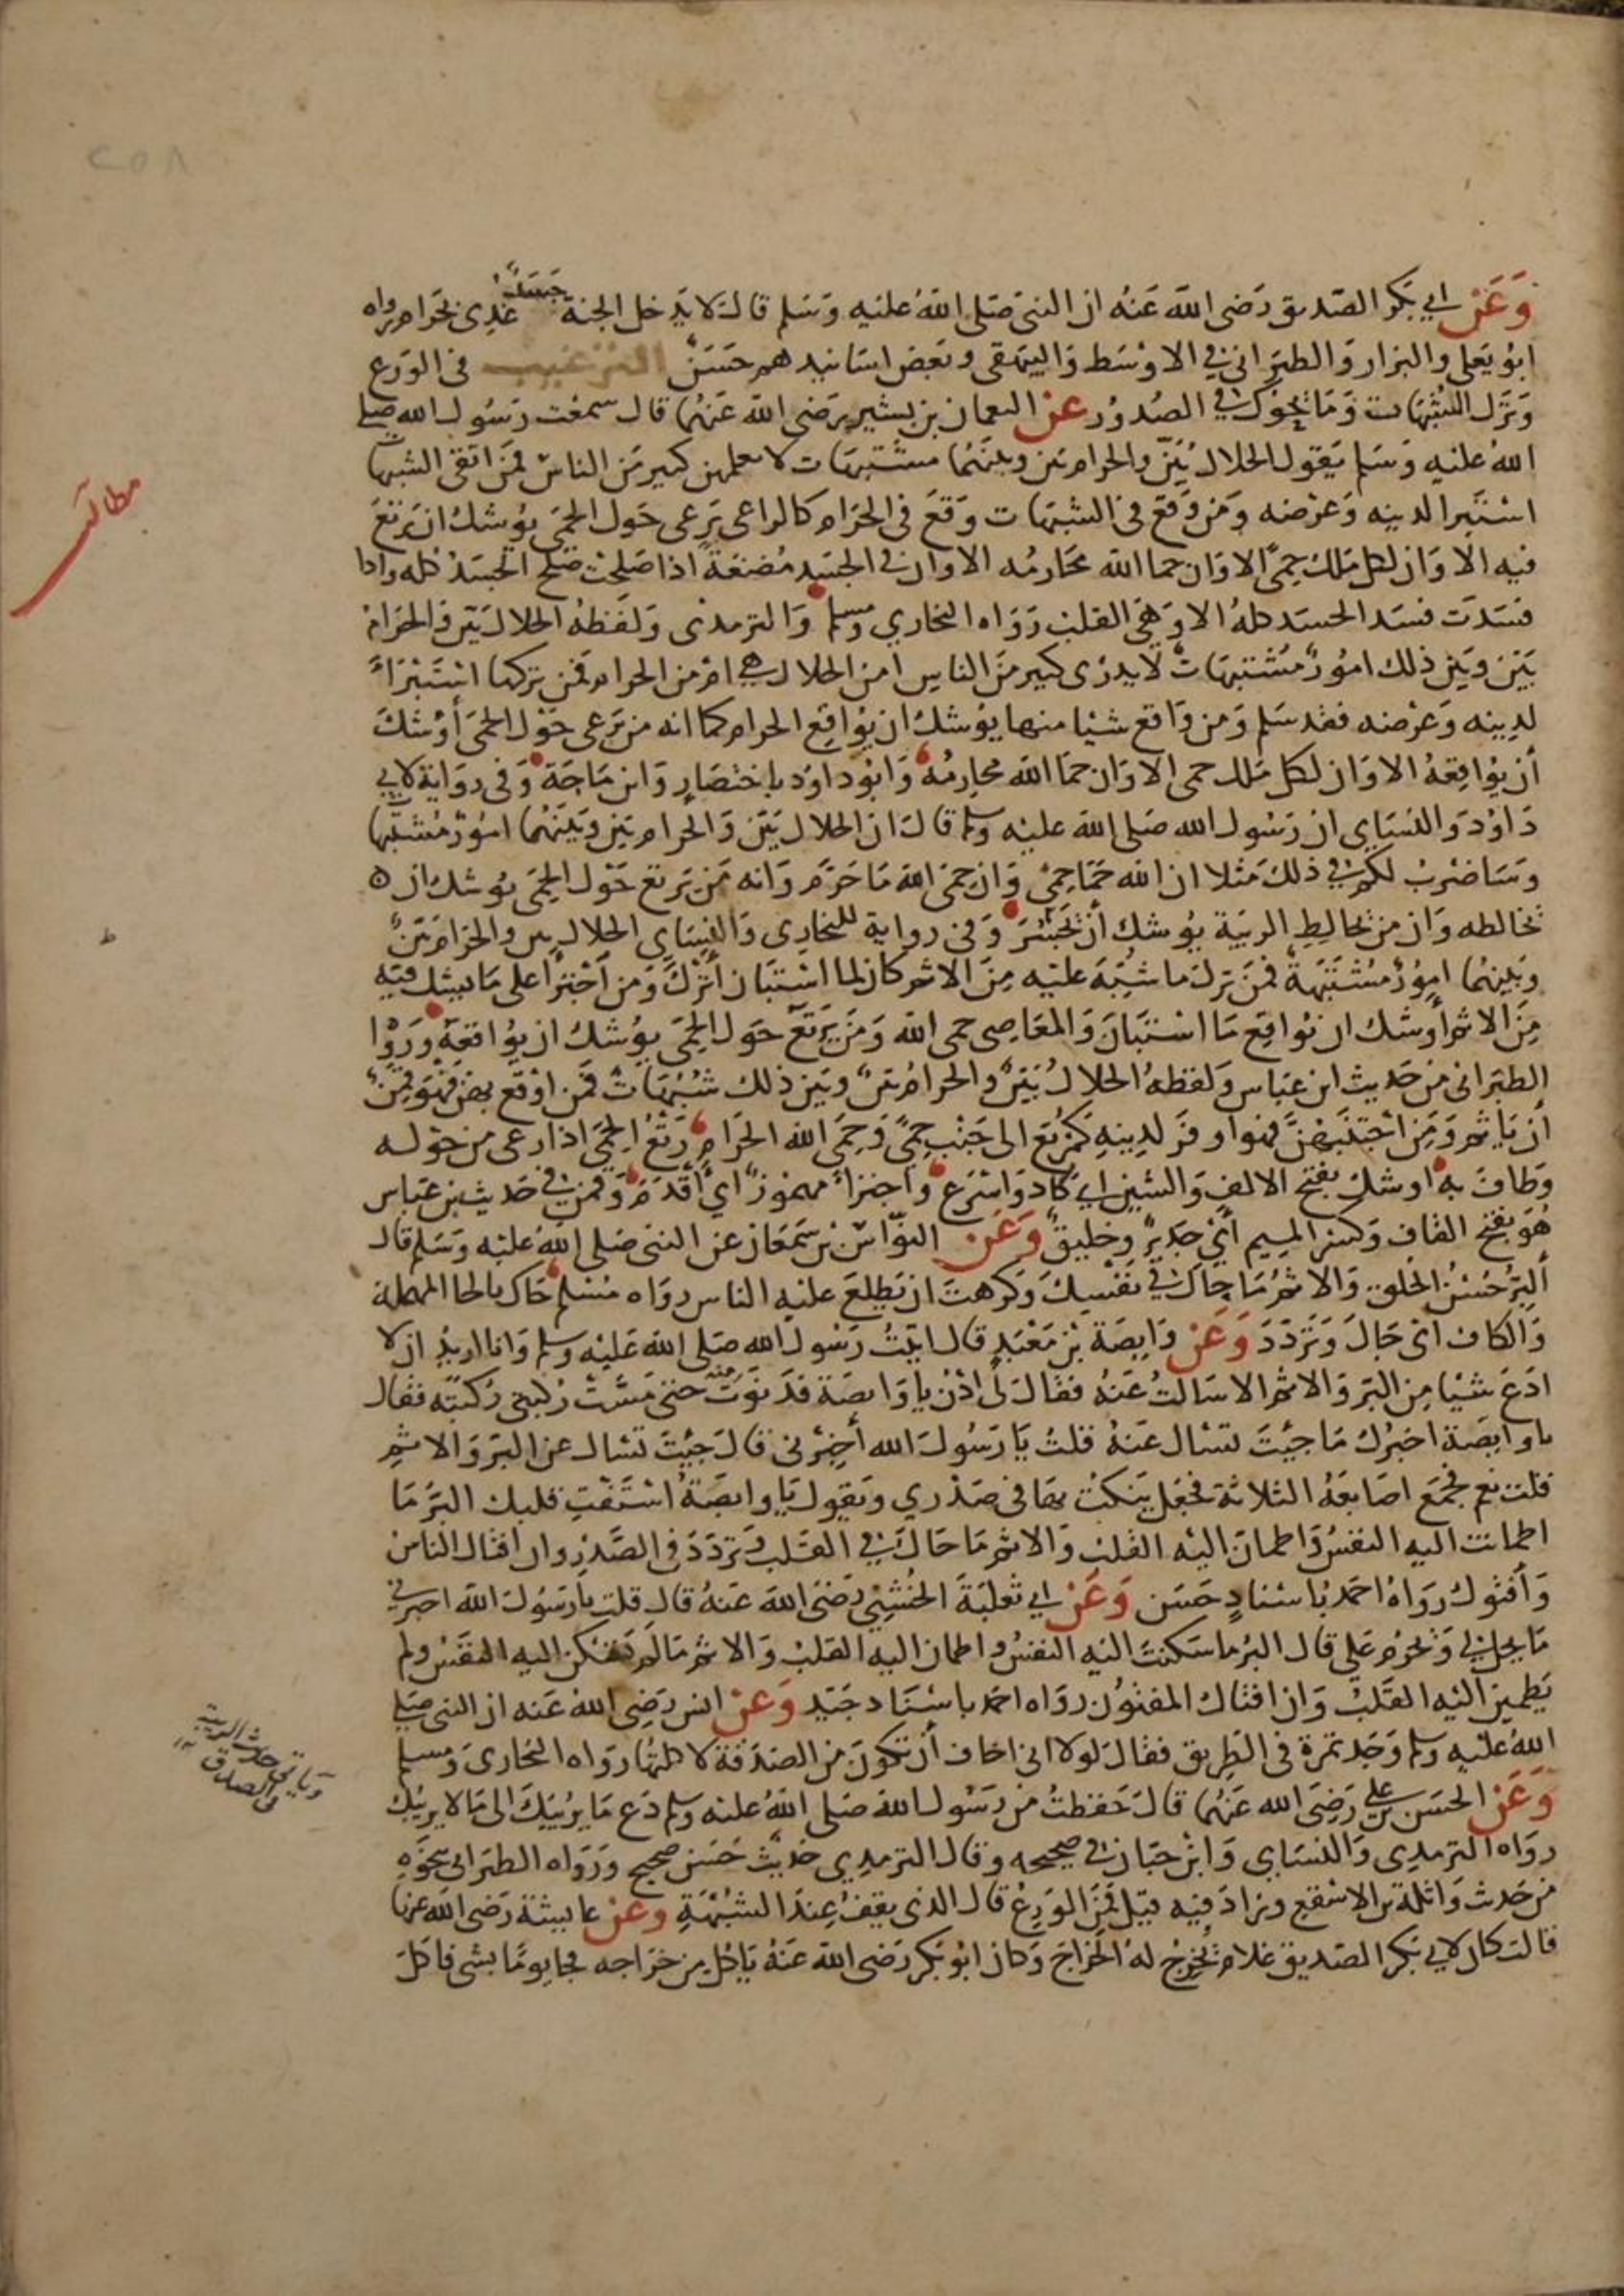 ٢٥٨
وَعَنْ ابي بَكر الصّديق رَضى اللّه عَنْهُ ان النبىّ صَلى اللّهُ علَيه وَسَلم قالَ لا يَدخل الجنة جَسَدٌ غُذِى بحَرام رواه
ابوُ يَعلى والبزار وَالطبَرانى في الاوْسَط وَالبيهقى وبَعض اسَانيدهم حَسَنٌ الترغيب فى الوَرَع
وَتَرْك الشُبُهَات وَمَا يَحُوك في الصُدوُر عَن النعمان بن بشيرٍ رَضى اللّه عَنهُمَا قال سمعْت رَسُول الله صلى
اللهُ عليه وَسَلم يَقول الحلالُ بَيِّن والحرام بَين وبينَهُمَا مشْتبهَات لا يعلمهن كثير مَن الناسْ فمَن اتقى الشبهات
اسْتَبرا لدينه وَعرْضه ومَن وَقعَ فى الشبهَات وقعَ فى الحَرَام كالراعى يَرعى حَول الحِمَى يوُشكُ ان يَرتعَ
فيه الا وَان لكل مَلك حِمىً الا وَان حما اللّه محَارمُه الا وَان في الجسَد مُضغَةً اذا صَلحَت صَلح الجَسَدُ كله واذا
فسَدَت فسَد الجسَد كلهُ الا وَهىَ القلب رَوَاه البخاري ومسلم وَالترمذى وَلفَظهُ الحلال بَيّن وَالحَرامُ
بَيّنٌ وبَين ذلك امُورٌ مُشتبهَاتٌ لا يدرى كثير مَن الناسِ امن الحلال هي امْ من الحرام فمَن تركها اسْتَبْرَاءً
لدينه وَعرْضه فقد سَلم وَمن وَاقع شيْا منها يوُشكُ ان يوُاقِع الحرام كما انه من يَرعى حَوْل الحمىَ أوْشَكَ
أن يوُاقِعهُ الا وَان لكل مَلك حمى الا وَان حمَا اللّه محارمُه وَابوُ داوُد باختصَارٍ وَابن مَاجَة وَفى روَاية لابي
دَاوُدَ وَالنسَاى ان رَسُول الله صَلى اللّه عليه وسلم قالَ ان الحلال بَيّن وَالحَرام بَين وَبَينَهُمَا امُورٌ مُشتبهات
وسَاضربُ لكم في ذلكَ مَثلا ان اللّه حمَا حِمىً وَان حِمىَ اللّهِ مَا حَرّم وَانه مَن يَرتع حَوْل الحِمىَ يوُشك ان ه
يخالطه وَان من يخالِطِ الريبَة يوُشك أن يجْسُرَ وَفى رواية للبخارى وَالنسَاى الحلال بين والحَرام بَيّنٌ
وبَينهُمَا امورٌ مُشْتَبهةٌ فمَن تركَ ما شُبّهَ علَيه مِنَ الاثم كان لما اسْتَبَان أترَك وَمَن اجْترَا على مَا يشك فيه
مِنَ الاثم أوشك ان يوُاقعَ مَا اسْتبَانَ وَالمعَاصى حمى اللّه وَمَن يَرتَعْ حَول الحِمَى يوُشكُ ان يوُاقعَه ورَوَا
الطبَرانى من حَديث ابن عبَاس وَلفظهُ الحلالُ بَيّن والحرامُ بيّنٌ وبَين ذلك شبُهَاتٌ فمَن اوْقع بهن فهُو قمِنٌ
أن يَاثم وَمَن اجتنبَهُنَّ فهوَ اوفرَ لدِينهِ كمُرتعٍ الى جَنْبِ حِمىً وَحِمىَ الله الحَرَامُ رَتعَ الحِمىَ اذا رعى من حَوله
وَطافَ به اوشكَ بفتح الالف وَالشين اي كادَ وَاسْرَع واجترأ مهموُزٌ اي أقدَمَ وَقمنٌ في حَديث بن عَبّاس
هُو بفتح القاف وَكسْر الميم أيْ جديرٌ وخليقٌ وَعَن النوّاسْ بن سَمعَان عن النبى صَلى اللّهُ علَيه وَسَلم قال
ألبِرُّ حُسْنُ الخلق وَالاثمُ مَا حاك في نفسِكَ وَكرهتَ ان يَطلِعَ علَيه الناس روَاه مُسْلم حاك بالحا المهملة
وَالكاف اىْ جَالَ وَترَدّدَ وَعَن وَابصَة بْن مَعْبَدٍ قال اتيْتُ رَسُولَ الله صَلى اللّهُ عَليْه وسلم وَانا اريد ان لا
ادَعَ شيْا مِن البرّ وَالاثم الا سَالتُ عَنْهُ فقالَ لى ادْنُ يا وَابصَة فدَنوَتُ منه حَتى مَسّتْ رُكبتى رُكبتَه فقال
يا وابصَة اخبرُك مَا جيْتَ تسْال عَنْهُ قلتُ يَا رَسُولَ الله أخبِرْنى قالَ جيْتَ تسْال عن البرّ وَالاثم
قلت نعم فجمَع اصَابعَهُ الثلاثة فجعَل يَنكتُ بهَا فى صَدْري ويَقول يَا وابصَةُ اسْتَفْتِ قلبك البرُّ مَا
اطمانت اليه النفسُ وَاطمان اليْه القلب وَالاثمُ مَا حَاكَ في القَلب وَترَدّدَ فى الصَّدرِ وان افتاك الناسُ
وَأفتوك رَوَاهُ احمَد باسْنادٍ حَسَن وَعَن ابي ثعلبَةَ الخُشَنِيّ رَضىَ اللّهُ عَنْهُ قال قلت يا رَسُولَ اللّه اخبرني
مَا يحل لي وَيحرُم علي قال البرُّ ما سكنتْ اليْه النفسُ واطمان اليه القلبُ وَالاثم مَا لم تسكن اليه النفسُ ولم
يَطمين اليْه القَلبُ وَان افتاك المفتوُن روَاه احمد باسْنَاد جَيّد وَعَن انس رَضِى اللهُ عَنه ان النبى صَلى
اللّهُ عليه وسلم وَجَد تمرة فى الطريق فقالَ لولا انى اخاف أن تكونَ من الصَدقة لاكلتُهَا روَاه البخارىّ وَمُسلم
وَعَن الحسَن بن علي رَضِىَ الله عَنهُمَا قالَ حَفظتُ من رَسُول الله صَلى اللّهُ عليه وسلم دَع مَا يَريبَكَ الى مَا لا يَريبُك
روَاه الترمذى وَالنسَاي وَابْن حبّان في صحيحه وقال الترمذى حَديثٌ حَسَن صحيح وَرَوَاه الطبَرانى بنَحْوه
من حَديث وَاثلة بن الاسْقع وزادَ فيه قيل فمَن الوَرِعُ قال الذى يقِفُ عِندَ الشبُهةِ وعَن عايشة رَضى اللّه عَنها
قالت كان لابي بَكر الصّديق غلامٌ يُخرِجُ لهُ الخرَاجَ وَكان ابوُ بَكر رَضى اللّه عَنْهُ يَاكل من خرَاجه فجا يومًا بشى فاكلَ
مطلب
ط
وياتى حديث الريبة
في الصدق